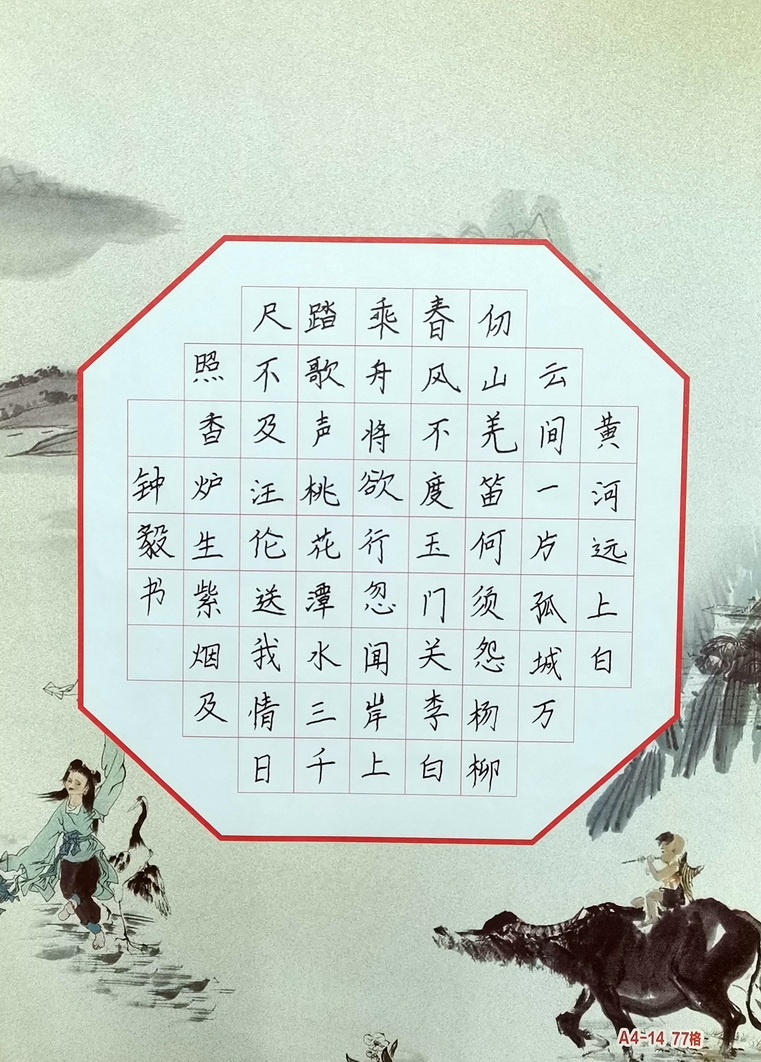 黄河远上白
云间一片孤城万
仞山羌笛何须怨杨柳
春风不度玉门关李白
乘舟将欲行忽闻岸上
踏歌声桃花潭水三千
尺不及汪伦送我情日
照香炉生紫烟及
钟毅书
A4-14 77格